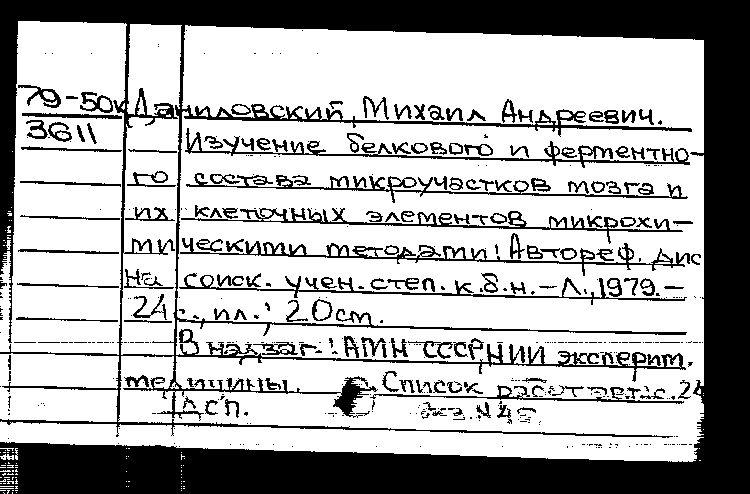 79-50к Даниловский, Михаил Андреевич.
3611 Изучение белкового и ферментно-
го состава микроучастков мозга и
их клеточных элементов микрохи-
мическими методами: Автореф. дис
на соиск. учен. степ. к.б.н. - Л., 1979. -
24 с., ил.; 20 см.
В надзаг.: АМН СССР, НИИ эксперим.
медицины. Список работ авт.: с. 24
ДСП. экз. N 45.